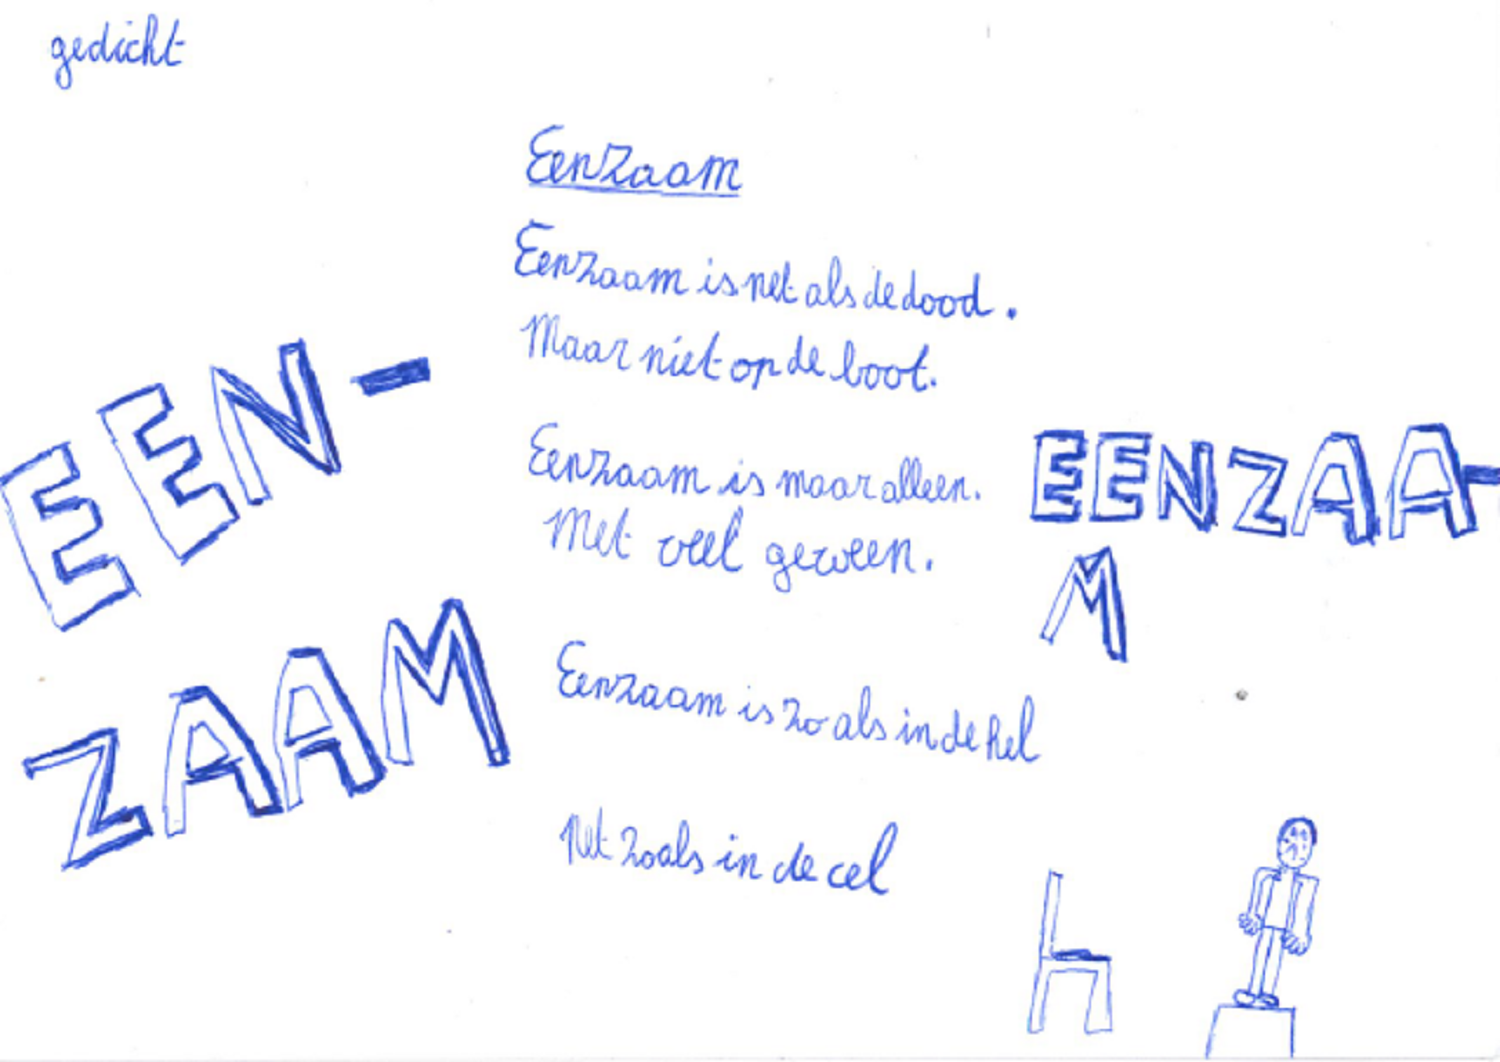 gedicht
Eenzaam
Eenzaam is net als de dood.
Maar niet op de boot.
EEN-
ZAAM
Eenzaam is maar alleen.
Met veel geween.
EENZAA-
M
Eenzaam is zo als in de hel
Net zoals in de cel